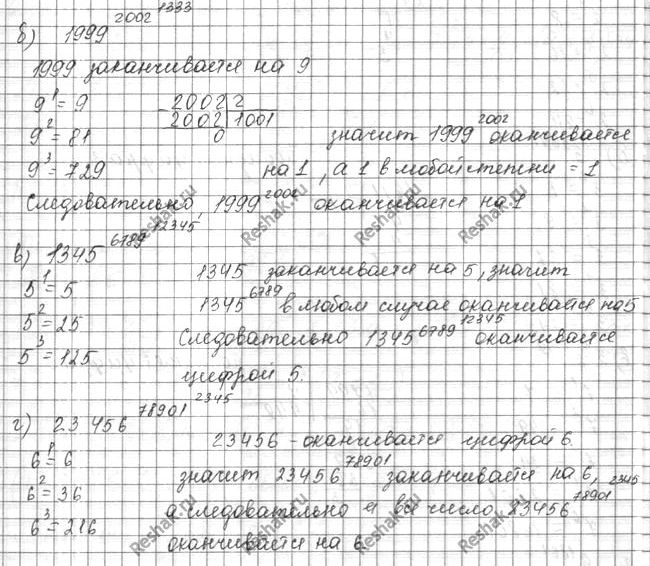 б) 1999^2002^1333
1999 заканчивается на 9
9^1 = 9
2002 | 2
9^2 = 81
2002 | 1001
0
значит 1999^2002 оканчивается
9^3 = 729
на 1, а 1 в любой степени = 1
Следовательно, 1999^2002 оканчивается на 1
в) 1345^6789^12345
1345 заканчивается на 5, значит
5^1 = 5
1345^6789 в любом случае оканчивается на 5
5^2 = 25
Следовательно 1345^6789^12345 оканчивается
5^3 = 125
цифрой 5.
г) 23 456^78901^2345
23456 - оканчивается цифрой 6
6^1 = 6
значит 23456^78901 заканчивается на 6,
6^2 = 36
а следовательно и все число 23456^78901^2345
6^3 = 216
оканчивается на 6
Reshak.ru
Reshak.ru
Reshak.ru
Reshak.ru
Reshak.ru
Reshak.ru
Reshak.ru
Reshak.ru